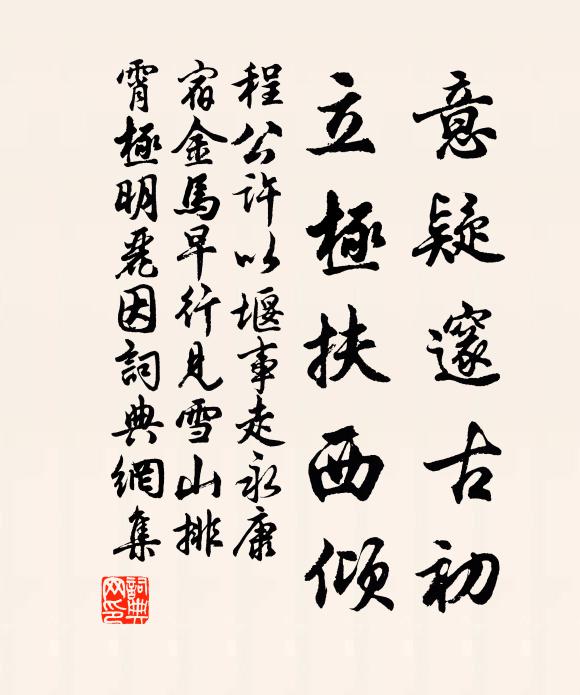 意疑邃古初
立極扶西傾
程公許以堰事走永康
宿金馬早行見雪山排
霄極明麗因詞典網集
詞典网印